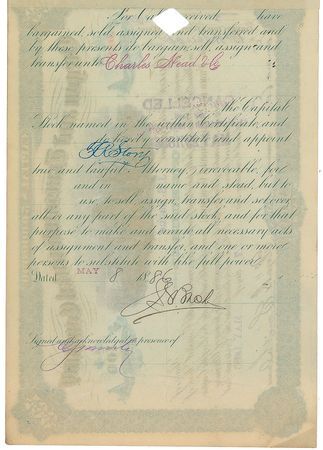 For Value Received, have
bargained, sold, assigned and transferred and
by these presents do bargain, sell, assign and
transfer unto Charles Head & Co
CANCELLED
the Capital
Stock named in the within Certificate, and
do hereby constitute and appoint
true and lawful Attorney, irrevocable, for
and in name and stead, but to
use, to sell, assign, transfer and set over,
all or any part of the said stock, and for that
purpose to make and execute all necessary acts
of assignment and transfer, and one or more
persons to substitute with like full power.
Dated MAY 8 188
Signed and acknowledged in presence of